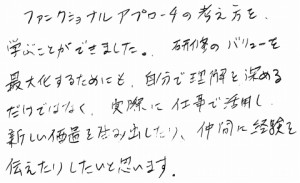 ファンクショナルアプローチの考え方を、
学ぶことができました。研修のバリューを
最大化するためにも、自分で理解を深める
だけではなく、実際に仕事で活用し
新しい価値を生み出したり、仲間に経験を
伝えたりしたいと思います。